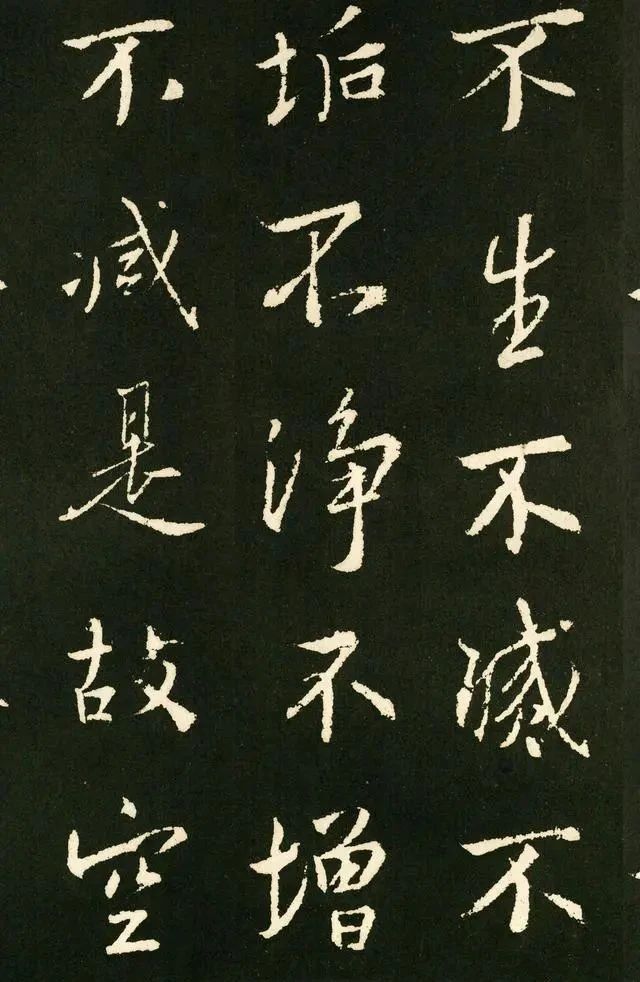 不生不滅不
垢不淨不增
不減是故空